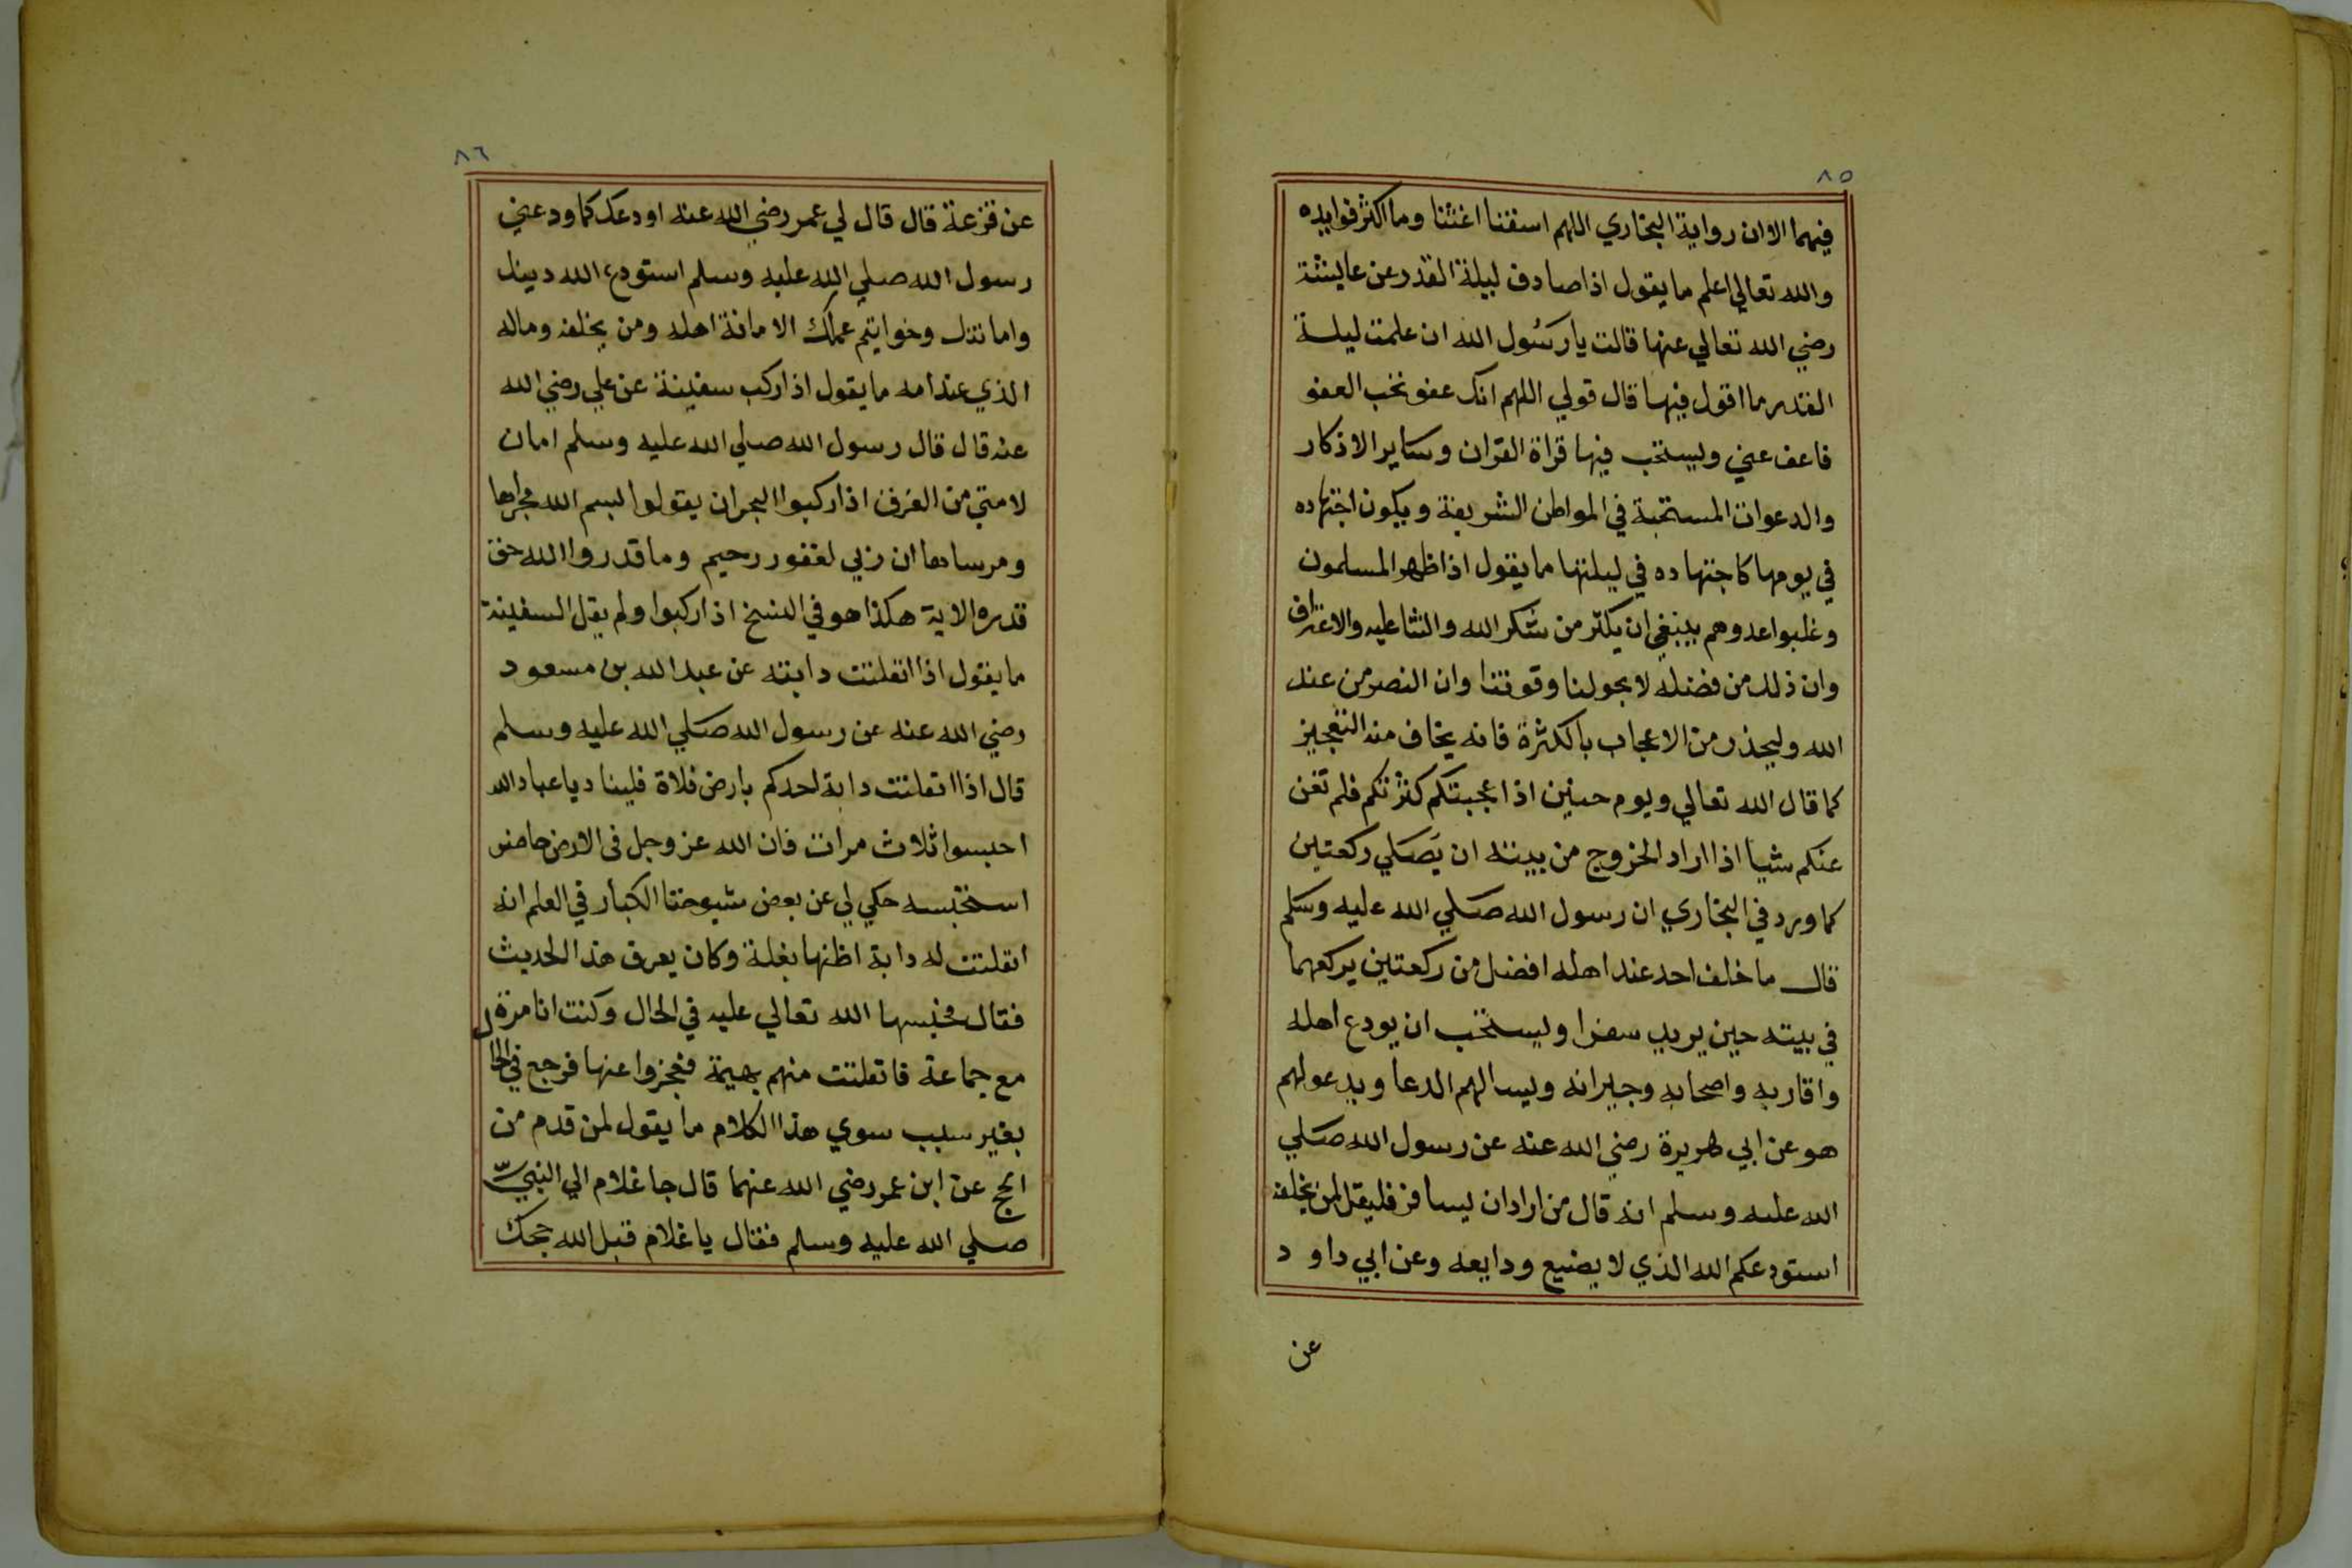 ٨٥
فيهما الا ان رواية البخاري اللهم اسقنا اغثنا وما اكثر فوايده
والله تعالي اعلم ما يقول اذا صادف ليلة القدر عن عايشة
رضي الله تعالي عنها قالت يا رسول الله ان علمت ليلة
القدر ما اقول فيها قال قولي اللهم انك عفو تحب العفو
فاعف عني ويستحب فيها قراة القران وساير الاذكار
والدعوات المستحبة في المواطن الشريفة ويكون اجتهاده
في يومها كاجتهاده في ليلتها ما يقول اذا ظهر المسلمون
وغلبوا عدوهم ينبغي ان يكثر من شكر الله والثنا عليه والاعتراف
وان ذلك من فضله لا بحولنا وقوتنا وان النصر من عند
الله وليحذر من الاعجاب بالكثرة فانه يخاف منه التعجيز
كما قال الله تعالي ويوم حنين اذا عجبتكم كثرتكم فلم تغن
عنكم شيا اذا اراد الخروج من بيته ان يصلي ركعتين
كما ورد في البخاري ان رسول الله صلي الله عليه وسلم
قال ما خلف احد عند اهله افضل من ركعتين يركعهما
في بيته حين يريد سفرا ويستحب ان يودع اهله
واقاربه واصحابه وجيرانه ويسالهم الدعا ويدعولهم
هو عن ابي هريرة رضي الله عنه عن رسول الله صلي
الله عليه وسلم انه قال من اراد ان يسافر فليقل لمن يخلف
استودعكم الله الذي لا يضيع ودايعه وعن ابي داو د
عن
٨٦
عن قزعة قال قال لي عمر رضي الله عنه اودعك كما ودعني
رسول الله صلي الله عليه وسلم استودع الله دينك
وامانتك وخوايتم عملك الامانة اهله ومن يخلفه وماله
الذي عند امه ما يقول اذا ركب سفينة عن علي رضي الله
عنه قال قال رسول الله صلي الله عليه وسلم امان
لامتي من الغرق اذا ركبوا البحر ان يقولوا بسم الله مجراها
ومرساها ان ربي لغفور رحيم وما قدروا الله حق
قدره الاية هكذا هو في النسخ اذا ركبوا ولم يقل السفينة
ما يقول اذا انفلتت دابته عن عبد الله بن مسعود
رضي الله عنه عن رسول الله صلي الله عليه وسلم
قال اذا انفلتت دابة احدكم بارض فلاة فلينادي يا عباد الله
احبسوا ثلاث مرات فان الله عز وجل في الارض حاضر
استحبسه حكي لي عن بعض شيوخنا الكبار في العلم انه
انفلتت له دابة اظنها بغلة وكان يعرف هذا الحديث
فقال فحبسها الله تعالي عليه في الحال وكنت انا مرة
مع جماعة فانفلتت منهم بهيمة فعجزوا عنها فرجع في الحال
بغير سبب سوي هذا الكلام ما يقول لمن قدم من
الحج عن ابن عمر رضي الله عنهما قال جا غلام الي النبي
صلي الله عليه وسلم فقال يا غلام قبل الله حجك